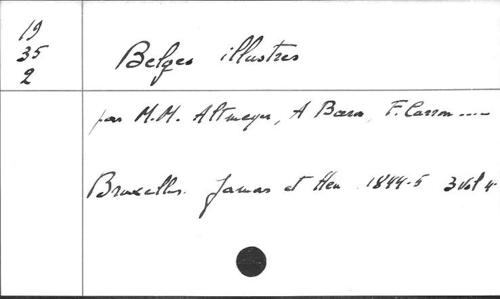 19
35
2
Belges illustres
par M.M. Altmeyer, A Baron, F. Carron ----
Bruxelles. Jamar et Hen 1844-5 3 vol 4º